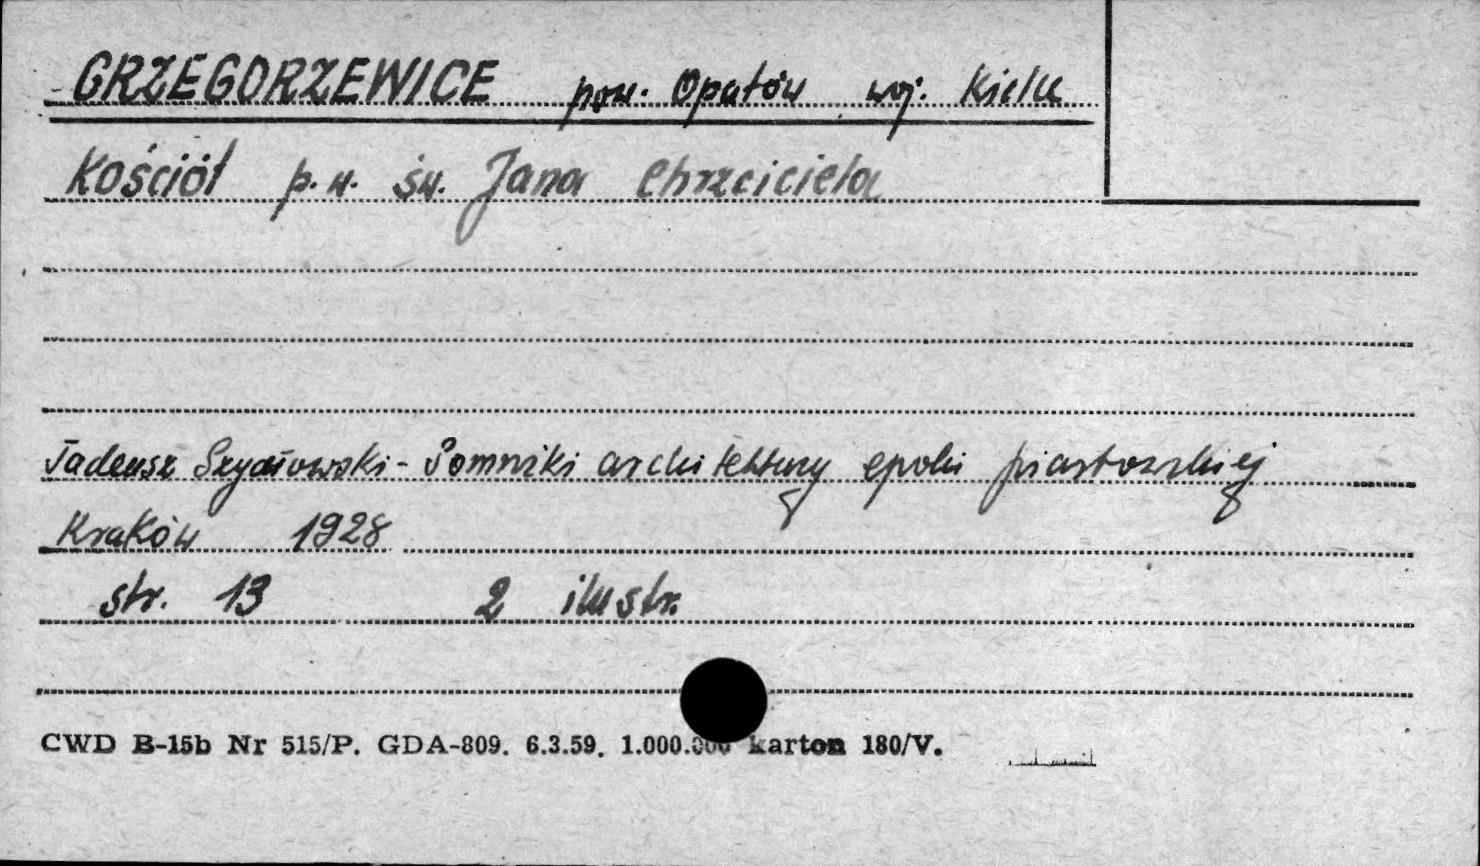 GRZEGORZEWICE pow. Opatów woj. Kielce
Kościół p.w. św. Jana Chrzciciela
Tadeusz Szydłowski - Pomniki architektury epoki piastowskiej
Kraków 1928
str. 13 2 ilustr.
CWD B-15b Nr 515/P. GDA-809. 6.3.59. 1.000.000 karton 180/V.